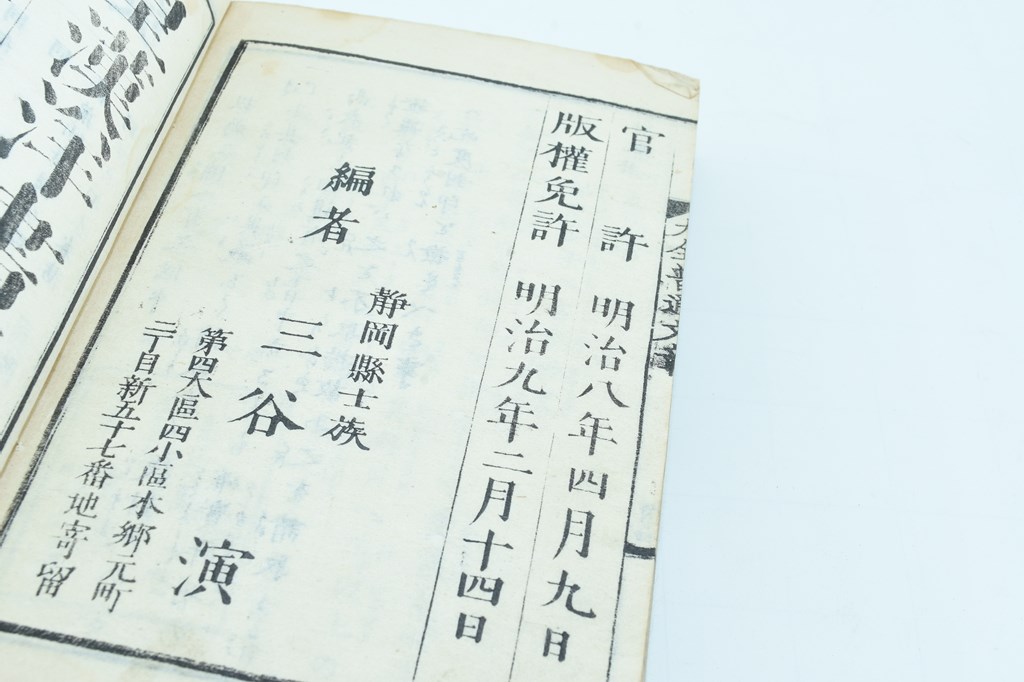 官許 明治八年四月九日
版權免許 明治九年二月十四日
編者
靜岡縣士族
三谷演
第四大區四小區本鄉元町
二丁目新五十七番地寄留